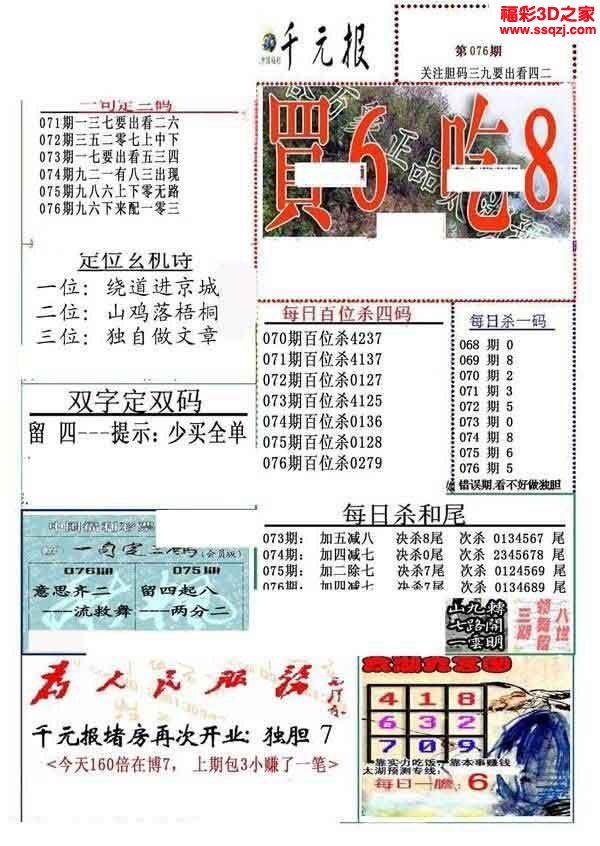 福彩3D之家
www.ssqzj.com
千元报
第076期
关注胆码三九要出看四二
一句定三码
071期一三七要出看二六
072期三五二零七上中下
073期一七要出看五三四
074期九二一有八三出现
075期九八六上下零无路
076期九六下来配一零三
買6 吃8
定位玄机诗
一位：绕道进京城
二位：山鸡落梧桐
三位：独自做文章
每日百位杀四码
070期百位杀4237
071期百位杀4137
072期百位杀0127
073期百位杀4125
074期百位杀0136
075期百位杀0128
076期百位杀0279
每日杀一码
068 期 0
069 期 8
070 期 2
071 期 3
072 期 5
073 期 0
074 期 8
075 期 5
076 期 5
错误期,看不好做独胆
双字定双码
留 四---提示：少买全单
每日杀和尾
073期： 加五减八 决杀8尾 次杀 0134567 尾
074期： 加四减七 决杀0尾 次杀 2345678 尾
075期： 加二除七 决杀7尾 次杀 0124569 尾
076期： 加四减七 决杀7尾 次杀 0134689 尾
中国福利彩票
一句定三码(会员版)
076期
意思齐二
----流救舞
075期
留四起八
----两分二
山九轉
七路開
一雲明
为人民服务
千元报堵房再次开业：独胆 7
<今天160倍在博7， 上期包3小赚了一笔>
4 1 8
6 3 2
7 0 9
靠实力吃饭，靠本事赚钱
太湖预测专线：
每日一胆：6